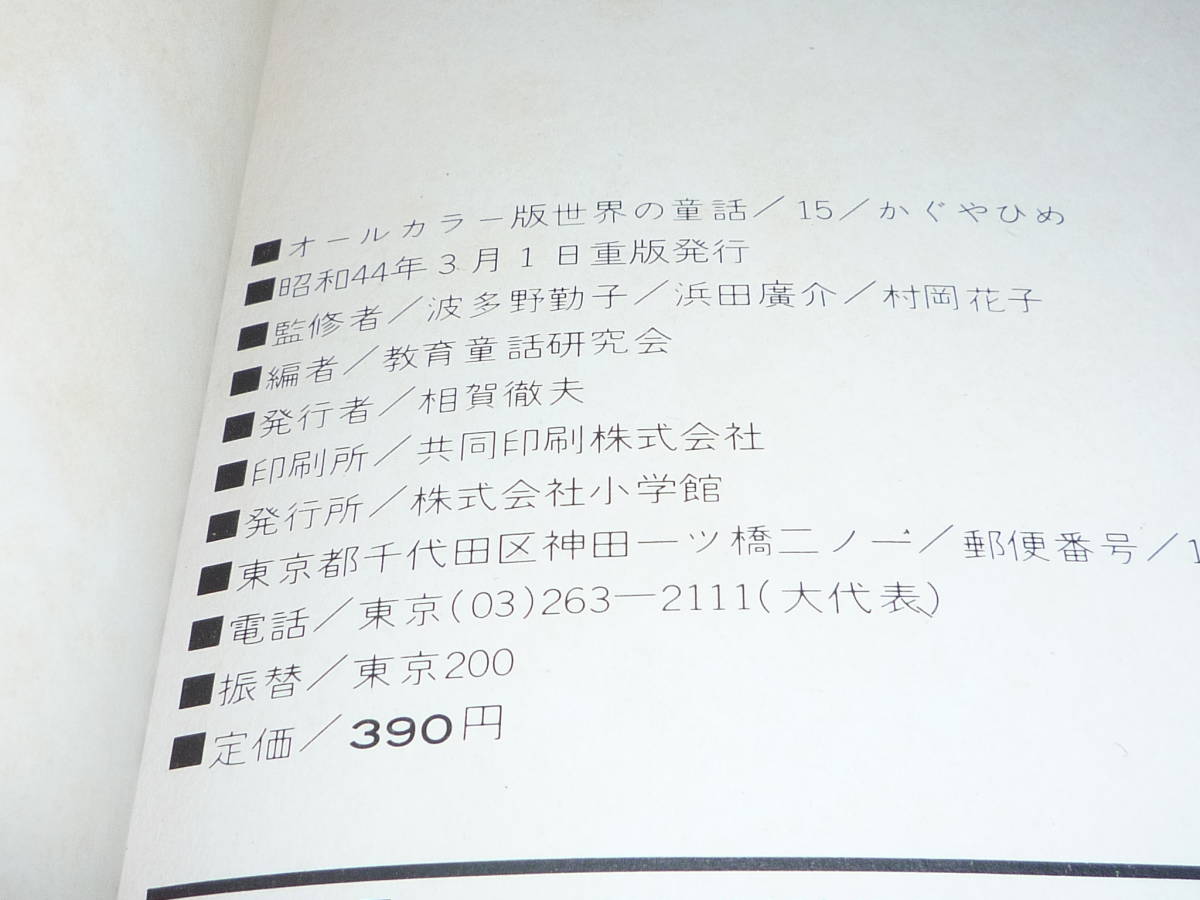 ■オールカラー版世界の童話/15/かぐやひめ
■昭和44年3月1日重版発行
■監修者/波多野勤子/浜田廣介/村岡花子
■編者/教育童話研究会
■発行者/相賀徹夫
■印刷所/共同印刷株式会社
■発行所/株式会社小学館
■東京都千代田区神田一ツ橋二ノ一/郵便番号/1
■電話/東京(03)263—2111(大代表)
■振替/東京200
■定価/390円